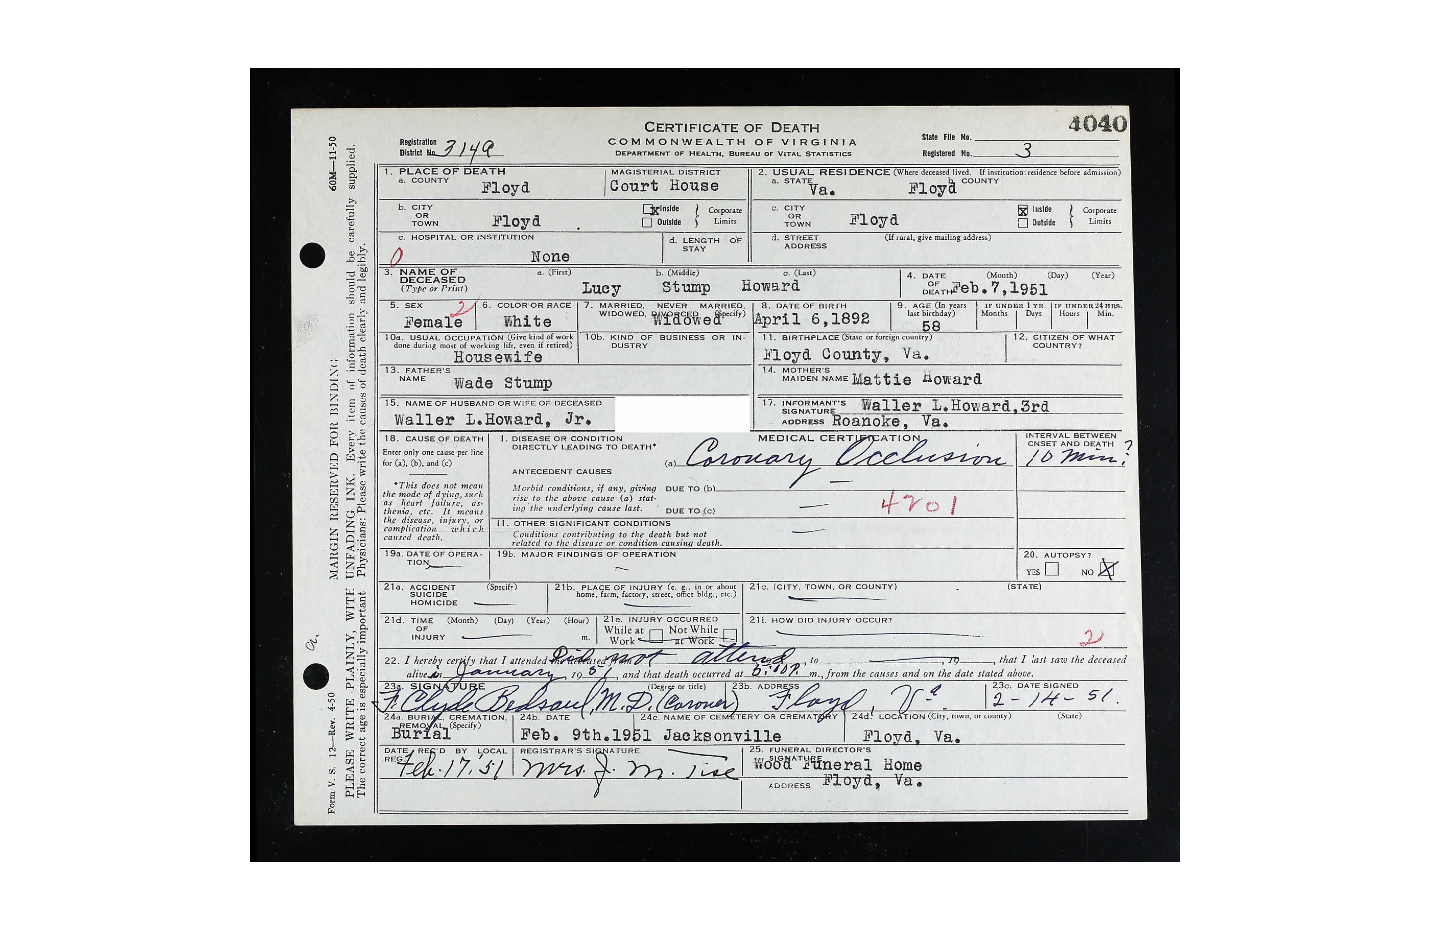 4040
CERTIFICATE OF DEATH
COMMONWEALTH OF VIRGINIA
DEPARTMENT OF HEALTH, BUREAU OF VITAL STATISTICS
Registration District No. 3149
State File No.
Registered No. 3
1. PLACE OF DEATH
a. COUNTY Floyd
MAGISTERIAL DISTRICT Court House
2. USUAL RESIDENCE (Where deceased lived. If institution: residence before admission)
a. STATE Va. b. COUNTY Floyd
b. CITY OR TOWN Floyd
Inside Outside Corporate Limits
c. CITY OR TOWN Floyd
Inside Outside Corporate Limits
c. HOSPITAL OR INSTITUTION None
d. LENGTH OF STAY
d. STREET ADDRESS (If rural, give mailing address)
0
3. NAME OF DECEASED (Type or Print)
a. (First) b. (Middle) c. (Last)
Lucy Stump Howard
4. DATE OF DEATH (Month) (Day) (Year)
Feb. 7, 1951
5. SEX Female 2
6. COLOR OR RACE White
7. MARRIED, NEVER MARRIED, WIDOWED, DIVORCED (Specify) Widowed
8. DATE OF BIRTH April 6, 1892
9. AGE (In years last birthday) 58
IF UNDER 1 YR. Months Days
IF UNDER 24 HRS. Hours Min.
10a. USUAL OCCUPATION (Give kind of work done during most of working life, even if retired) Housewife
10b. KIND OF BUSINESS OR INDUSTRY
11. BIRTHPLACE (State or foreign country) Floyd County, Va.
12. CITIZEN OF WHAT COUNTRY?
13. FATHER'S NAME Wade Stump
14. MOTHER'S MAIDEN NAME Mattie Howard
15. NAME OF HUSBAND OR WIFE OF DECEASED
Waller L.Howard, Jr.
17. INFORMANT'S SIGNATURE Waller L.Howard,3rd
ADDRESS Roanoke, Va.
18. CAUSE OF DEATH
Enter only one cause per line for (a), (b), and (c)
*This does not mean the mode of dying, such as heart failure, asthenia, etc. It means the disease, injury, or complication which caused death.
MEDICAL CERTIFICATION
INTERVAL BETWEEN ONSET AND DEATH
I. DISEASE OR CONDITION DIRECTLY LEADING TO DEATH*
(a) Coronary Occlusion
10 Min?
ANTECEDENT CAUSES
Morbid conditions, if any, giving rise to the above cause (a) stating the underlying cause last.
DUE TO (b)
DUE TO (c)
4201
II. OTHER SIGNIFICANT CONDITIONS
Conditions contributing to the death but not related to the disease or condition causing death.
19a. DATE OF OPERATION
19b. MAJOR FINDINGS OF OPERATION
20. AUTOPSY?
YES NO
21a. ACCIDENT SUICIDE HOMICIDE (Specify)
21b. PLACE OF INJURY (e. g., in or about home, farm, factory, street, office bldg., etc.)
21c. (CITY, TOWN, OR COUNTY) (STATE)
21d. TIME OF INJURY (Month) (Day) (Year) (Hour) m.
21e. INJURY OCCURRED While at Work Not While at Work
21f. HOW DID INJURY OCCUR?
2
22. I hereby certify that I attended the deceased from Did not attend, to , 19 , that I last saw the deceased
alive in January, 1951, and that death occurred at m., from the causes and on the date stated above.
23a. SIGNATURE (Degree or title) F. Clyde Bedsaul, M.D. (Coroner)
23b. ADDRESS Floyd, Va
23c. DATE SIGNED 2-14-51.
24a. BURIAL, CREMATION, REMOVAL (Specify) Burial
24b. DATE Feb. 9th.1951
24c. NAME OF CEMETERY OR CREMATORY Jacksonville
24d. LOCATION (City, town, or county) (State) Floyd, Va.
DATE REC'D BY LOCAL REG. Feb.17.51
REGISTRAR'S SIGNATURE Mrs. J. M. Tise
25. FUNERAL DIRECTOR'S SIGNATURE Wood Funeral Home
ADDRESS Floyd, Va.
Form V. S. 12—Rev. 4-50 60M—11-50
MARGIN RESERVED FOR BINDING:
PLEASE WRITE PLAINLY, WITH UNFADING INK. Every item of information should be carefully supplied.
The correct age is especially important. Physicians: Please write the causes of death clearly and legibly.